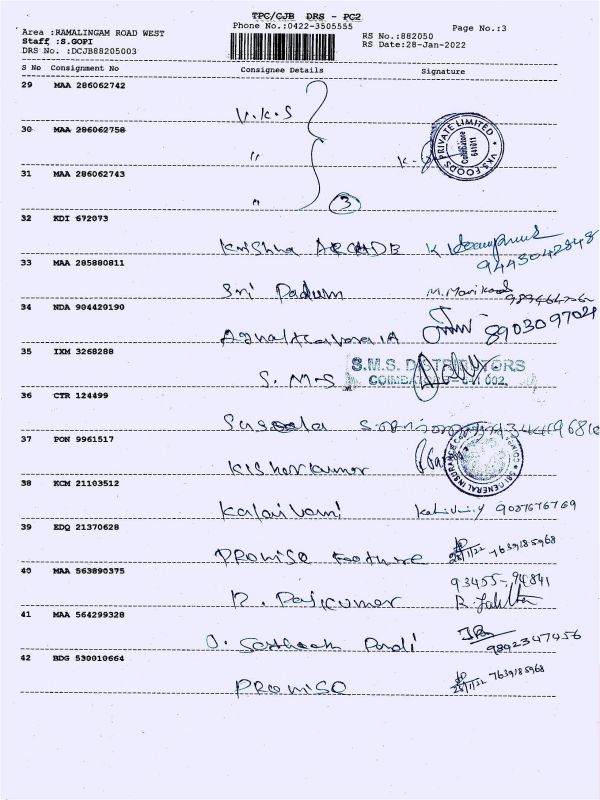 TPC/CJB DRS - PC2
Phone No.:0422-3505555
Page No.:3
Area :RAMALINGAM ROAD WEST
Staff :S.GOPI
DRS No. :DCJB88205003
RS No.:882050
RS Date:28-Jan-2022
S No Consignment No Consignee Details Signature
29 MAA 286062742
V.K.S
30 MAA 286062758
"
K.
VKS FOODS PRIVATE LIMITED
Coimbatore
641011
31 MAA 286062743
"
3
32 KDI 672073
Krishna ARCADE K
9443042848
33 MAA 285880811
Sri Padum M. Manikand
34 NDA 904420190
8903097021
35 IXM 3268288
S.M.S
S.M.S. DISTRIBUTORS
36 CTR 124499
Suseela
37 PON 9961517
Kishorkumar
SRI GENERAL INSURANCE
38 KCM 21103512
Kalaivani 9087676769
39 EDQ 21370628
PROMISE Footure 28/1/22 7639185968
40 MAA 563890375
93455-94841
R. Rajkumar R. Lalitha
41 MAA 564299328
O. Sertheesh Pandi 9842347456
42 BDG 530010664
PROMISE 28/1/22 7639185968